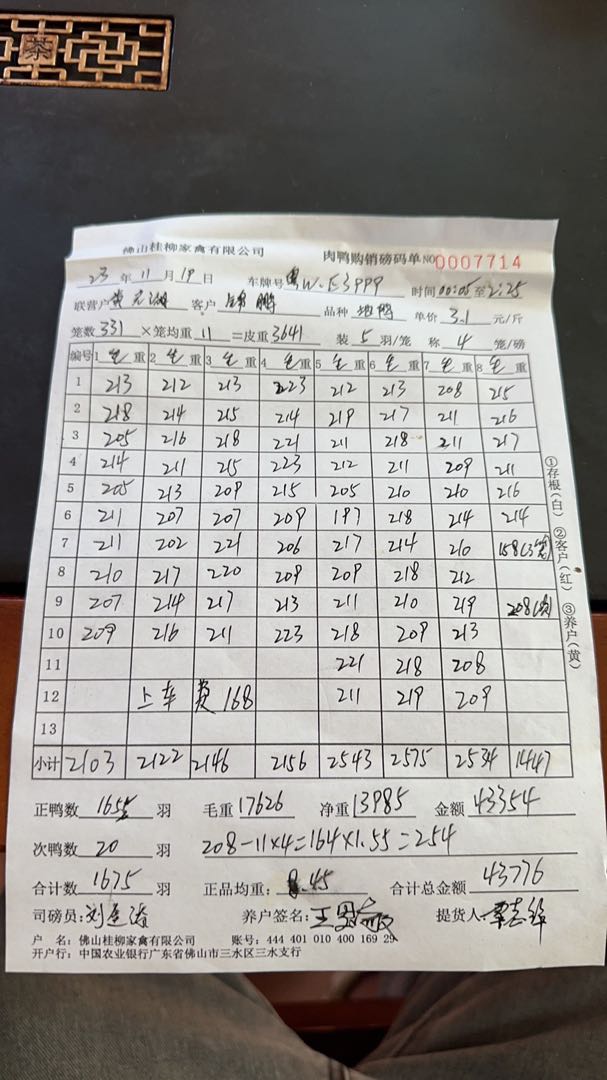 茶
佛山桂柳家禽有限公司 肉鸭购销磅码单 NO 0007714
23 年 11 月 19 日 车牌号 粤W·E3999 时间 00:05 至 2:25
联营户 客户 鹏 品种 单价 3.1 元/斤
笼数 331 ×笼均重 11 =皮重 3641 装 5 羽/笼 称 4 笼/磅
编号 1 毛 重 2 毛 重 3 毛 重 4 毛 重 5 毛 重 6 毛 重 7 毛 重 8 毛 重
1 213 212 213 223 212 213 208 215
2 218 214 215 214 219 217 211 216
3 205 216 218 221 211 218 211 217
4 214 211 215 223 212 211 209 211
5 205 213 209 215 205 210 210 216
6 211 207 207 209 197 218 214 214
7 211 202 221 206 217 214 210 158(3笼)
8 210 217 220 209 209 218 212
9 207 214 217 213 211 210 219 208
10 209 216 211 223 218 209 213
11 221 218 208
12 上车费 168 211 219 209
13
小计 2103 2122 2146 2156 2543 2575 2534 1447
正鸭数 1655 羽 毛重 17626 净重 13985 金额 43354
次鸭数 20 羽 208-11×4=164×1.55=254
合计数 1675 羽 正品均重: 8.45 合计总金额 43776
司磅员: 刘 养户签名: 王 提货人
户 名: 佛山桂柳家禽有限公司 账号: 444 401 010 400 169 29
开户行: 中国农业银行广东省佛山市三水区三水支行
①存根(白) ②客户(红) ③养户(黄)